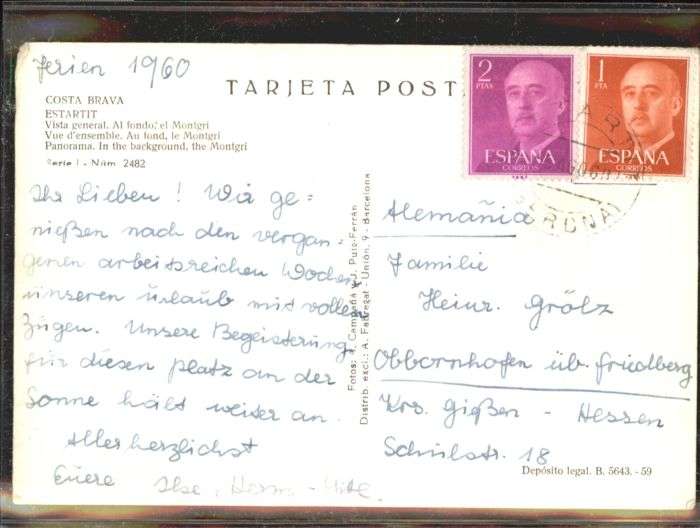 Ferien 1960
TARJETA POST
COSTA BRAVA
ESTARTIT
Vista general. Al fondo, el Montgri
Vue d'ensemble. Au fond, le Montgri
Panorama. In the background, the Montgri
Serie I - Núm 2482
Ihr Lieben! Wir ge=
nießen nach den vergan=
genen arbeitsreichen Wochen
unseren Urlaub mit vollen
Zügen. Unsere Begeisterung
für diesen Platz an der
Sonne hält weiter an.
Allerherzlichst
Euere Ilse,
Fotos: J. Campañá y J. Puig-Ferrán
Distrib. excl.: A. Fabregat - Unión, 9 - Barcelona
2
PTAS
ESPAÑA
CORREOS
1
PTA
ESPAÑA
CORREOS
GERONA
Alemañia
Familie
Heinr. Grölz
Obbornhofen üb. Friedberg
Krs. Gießen - Hessen
Schulstr. 18
Depósito legal. B. 5643. - 59